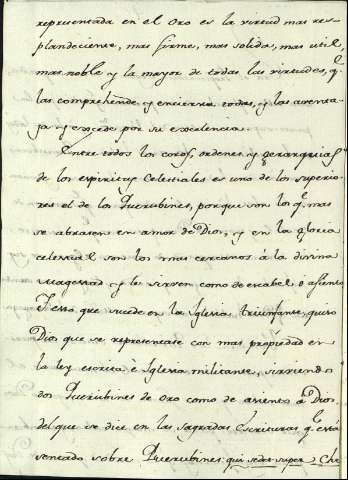 representada en el oro es la virtud mas res-
plandeciente, mas firme, mas solida, mas util,
mas noble y la mayor de todas las virtudes, q.e
las comprehende y encierra todas, y las aventa-
ja y excede por su excelencia.
Entre todos los coros, ordenes, y gerarquias
de los espiritus Celestiales es uno de los superio-
res el de los Querubines, porque son los q.e mas
se abrasan en amor de Dios, y en la gloria
celestial son los mas cercanos á la divina
magestad y le sirven como de escabel ó asiento
Y esto que sucede en la Iglesia triunfante, quiso
Dios que se representase con mas propiedad en
la ley escrita è Iglesia militante, sirviendo
dos Querubines de oro como de asiento á Dios
del que se dice en las sagradas Escrituras q.e está
sentado sobre Querubines qui sedes super Che